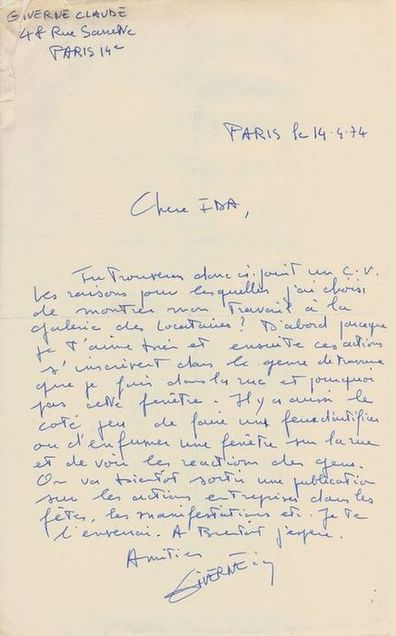 GIVERNE CLAUDE
48 Rue Sarrette
PARIS 14e
PARIS le 14.4.74
Chere IDA,
Tu trouveras donc ci-joint un C.V.
Les raisons pour lesquelles j'ai choisi
de montrer mon travail à la
galerie des Locataires? D'abord parceque
je t'aime bien et ensuite ces actions
s'inscrivent dans le genre de travaux
que je fais dans la rue et pourquoi
pas cette fenêtre. Il y a aussi le
coté jeu de faire un feux d'artifice
ou d'enfumer une fenêtre sur la rue
et de voir les reactions des gens.
On va bientôt sortir une publication
sur les actions entreprises dans les
fêtes, les manifestations etc. Je te
l'enverrai. A Bientôt j'espère.
Amitiés
GIVERNE